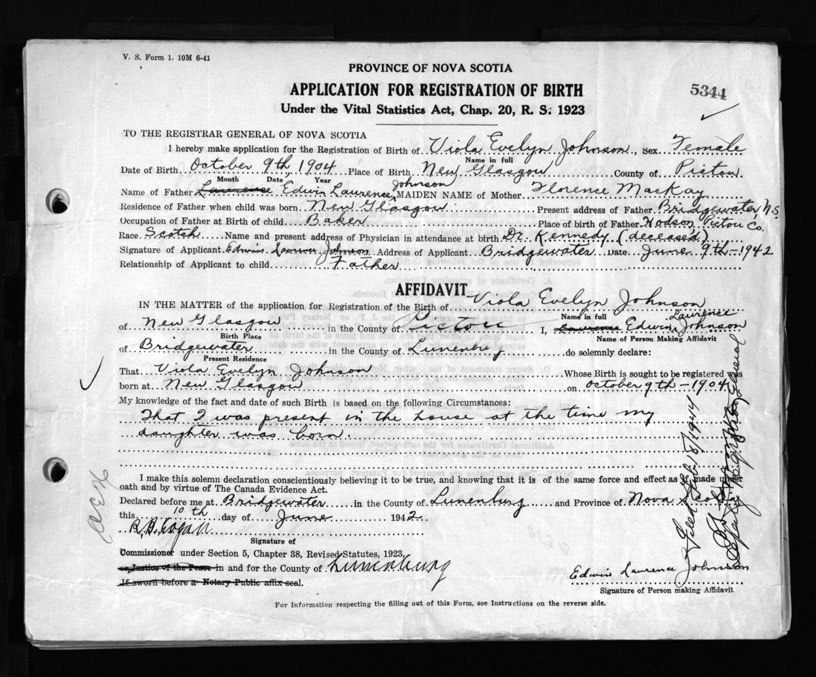 V. S. Form 1. 10M 6-41
PROVINCE OF NOVA SCOTIA
APPLICATION FOR REGISTRATION OF BIRTH
5344
Under the Vital Statistics Act, Chap. 20, R. S. 1923
TO THE REGISTRAR GENERAL OF NOVA SCOTIA
I hereby make application for the Registration of Birth of Viola Evelyn Johnson, Sex Female
Name in full
Date of Birth October 9th, 1904 Place of Birth New Glasgow County of Pictou
Month Date Year
Name of Father Laurence Edwin Laurence Johnson MAIDEN NAME of Mother Florence MacKay
Residence of Father when child was born New Glasgow Present address of Father Bridgewater N.S.
Occupation of Father at Birth of child Baker Place of birth of Father Hodson Pictou Co.
Race Scotch Name and present address of Physician in attendance at birth Dr. Kennedy (deceased)
Signature of Applicant Edwin Laurence Johnson Address of Applicant Bridgewater Date June 9th-1942
Relationship of Applicant to child Father
AFFIDAVIT
IN THE MATTER of the application for Registration of the Birth of Viola Evelyn Johnson
Name in full
of New Glasgow in the County of Pictou I, Laurence Edwin Laurence Johnson
Birth Place Name of Person Making Affidavit
of Bridgewater in the County of Lunenburg do solemnly declare:
Present Residence
That Viola Evelyn Johnson Whose Birth is sought to be registered was
born at New Glasgow on October 9th-1904
My knowledge of the fact and date of such Birth is based on the following Circumstances:
That I was present in the house at the time my
daughter was born.
I make this solemn declaration conscientiously believing it to be true, and knowing that it is of the same force and effect as if made under
oath and by virtue of The Canada Evidence Act.
Declared before me at Bridgewater in the County of Lunenburg and Province of Nova Scotia
this 10th day of June 1942.
Signature of
Commissioner under Section 5, Chapter 38, Revised Statutes, 1923,
or Justice of the Peace in and for the County of Lunenburg
If sworn before a Notary Public affix seal.
Edwin Laurence Johnson
Signature of Person making Affidavit
For Information respecting the filling out of this Form, see Instructions on the reverse side.